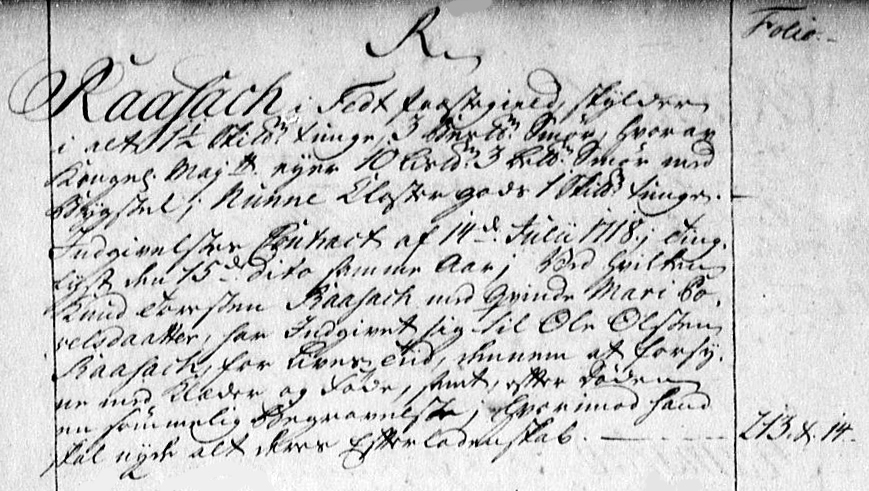 R.
Folio.
Raasach i Fedt præstegield, skylder
i alt 1½ Skild. tunge, 3 Smør, hvoraf
Kongel. May. eyer 10 3 Smør med
Bygsel, Nunne Kloster gods 1 Skild. tunge.
Indgivelses Contract af 14d. Julii 1718, ting-
lyst den 15d. dito samme Aar, ved hvilken
Knud Torsten Raasach med Qvinde Mari Po-
velsdaatter, har Indgivet sig til Ole Olsen
Raasach, for Lives Tid, dennem at forsy-
ne med Klæder og Føde, samt, efter Døden
en sømmelig Begravelse, hvorimod hand
skal nyde alt deres Efterladenskab. 213. & 14.